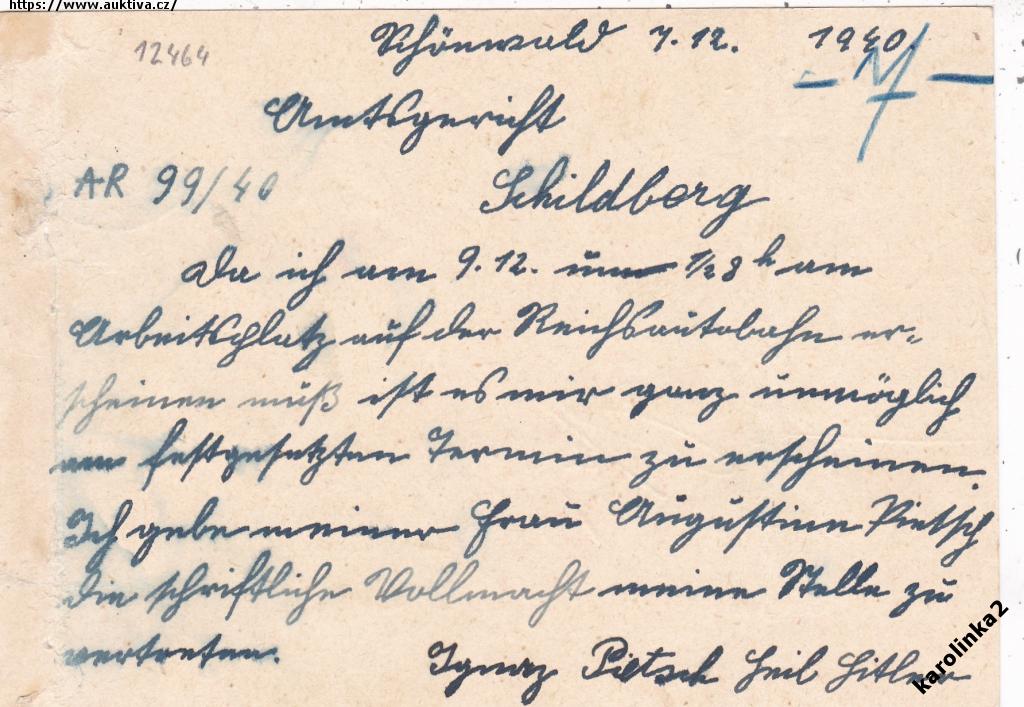 https://www.auktiva.cz/
Schönwald 7.12. 1940
12464
Amtsgericht
AR 99/40
Schildberg
Da ich am 9.12. um 1/2 8 h am
Arbeitsplatz auf der Reichsautobahn er-
scheinen muß ist es mir ganz unmöglich
am festgesetzten Termin zu erscheinen.
Ich gebe meiner Frau Augustine Pietsch
die schriftliche Vollmacht meine Stelle zu
vertreten.
Ignaz Pietsch Heil Hitler
karolinka2